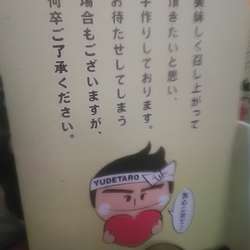 美味しく召し上がって
頂きたいと思い、
手作りしております。
お待たせしてしまう
場合もございますが、
何卒ご了承ください。
YUDETARO